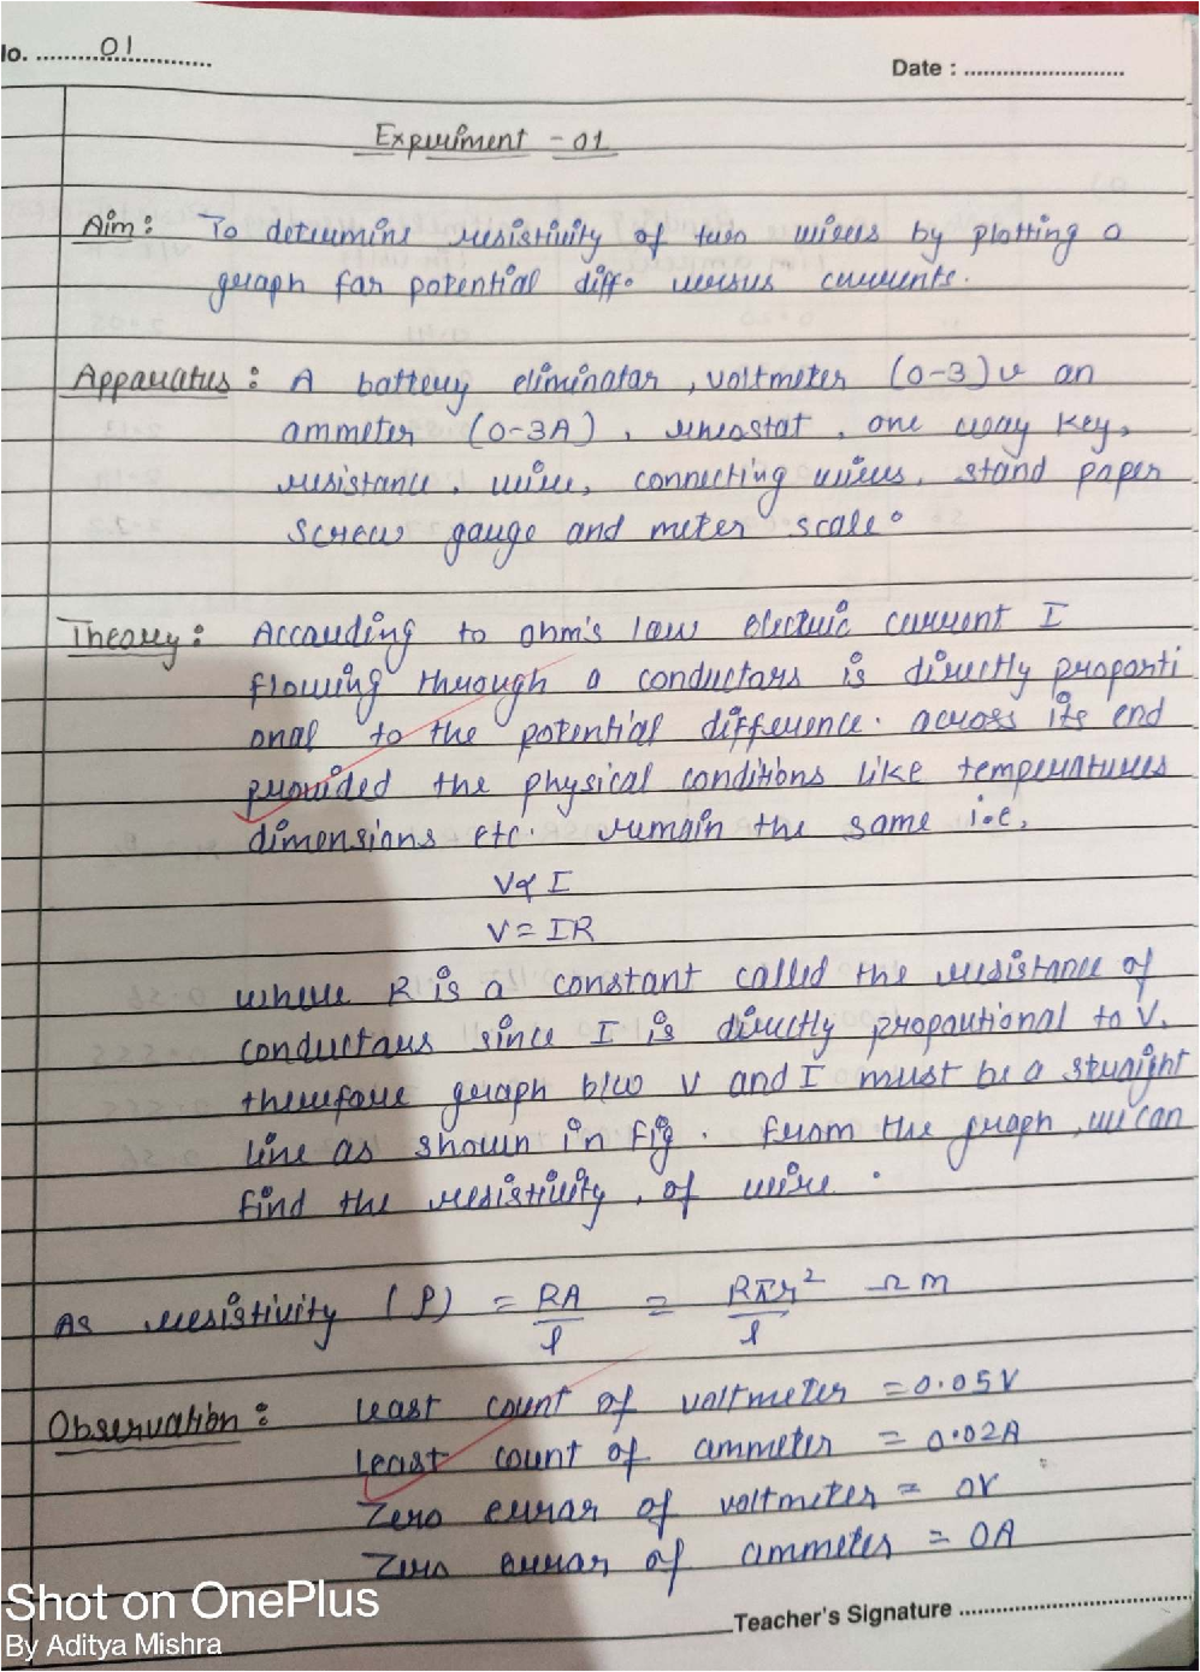 No. 01
Date :
Experiment - 01
Aim : To determine resistivity of two wires by plotting a
graph for potential diff. versus currents.
Apparatus : A battery eliminator, voltmeter (0-3)v an
ammeter (0-3A), rheostat, one way key,
resistance, wire, connecting wires, stand paper
screw gauge and meter scale.
Theory : According to ohm's law electric current I
flowing through a conductors is directly proporti
onal to the potential difference. across its end
provided the physical conditions like temperatures
dimensions etc. remain the same i.e,
V∝ I
V = IR
where R is a constant called the resistance of
conductors since I is directly propoutional to V.
therefore graph b/w v and I must be a straight
line as shown in fig. from the graph, we can
find the resistivity, of wire.
As resistivity (ρ) = RA/l = Rπr² /l Ωm
Observation : Least count of voltmeter = 0.05V
Least count of ammeter = 0.02A
Zero error of voltmeter = 0V
Zero error of ammeter = 0A
Teacher's Signature
Shot on OnePlus
By Aditya Mishra